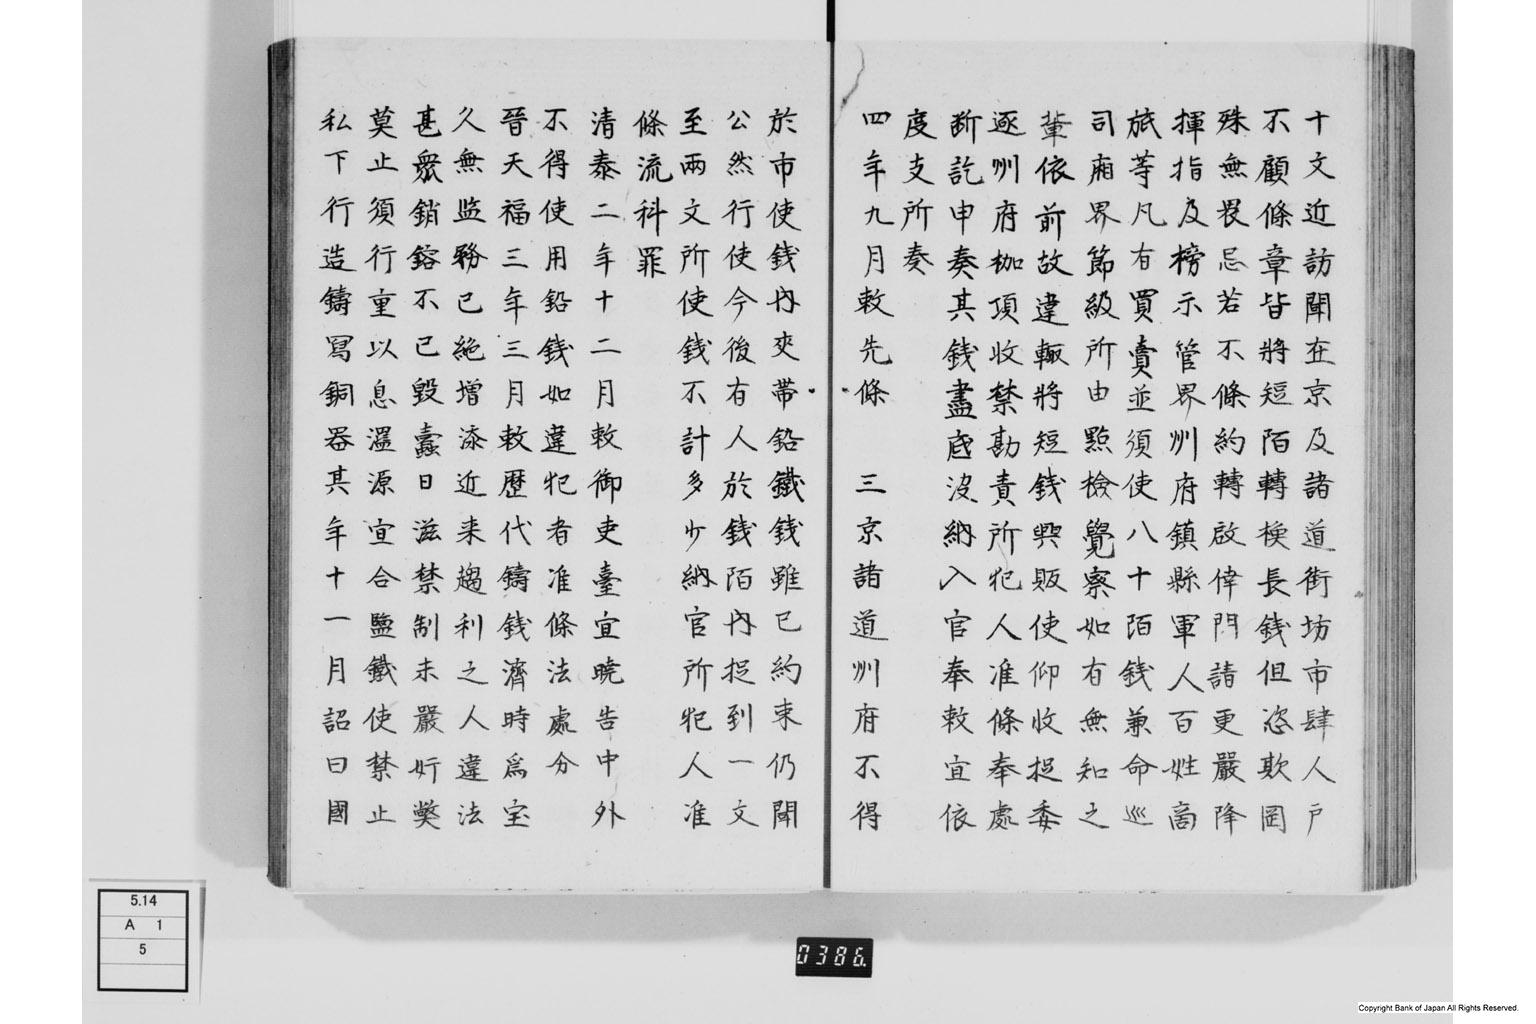 十文近訪聞在京及諸道街坊市肆人戶
不顧條章皆將短陌轉換長錢但恣欺罔
殊無畏忌若不條約轉啟倖門請更嚴降
揮指及榜示管界州府鎮縣軍人百姓商
旅等凡有買賣並須使八十陌錢兼命巡
司廂界節級所由點檢覺察如有無知之
輩依前故違輙將短錢興販使仰收捉委
逐州府枷項收禁勘責所犯人准條奉處
斷訖申奏其錢盡底沒納入官奉敕宜依
度支所奏
四年九月敕先條 三京諸道州府不得
於市使錢內夾帶鉛鐵錢雖已約束仍聞
公然行使今後有人於錢陌內捉到一文
至兩文所使錢不計多少納官所犯人准
條流科罪
清泰二年十二月敕御史臺宜曉告中外
不得使用鉛錢如違犯者准條法處分
晉天福三年三月敕歷代鑄錢濟時為宝
久無监務已絶增添近来趨利之人違法
甚衆銷鎔不已毀蠹日滋禁制未嚴奸弊
莫止須行重以息溫源宜令鹽鐵使禁止
私下行造鑄寫銅器其年十一月詔曰國
5.14
A 1
5
0386.
Copyright Bank of Japan All Rights Reserved.